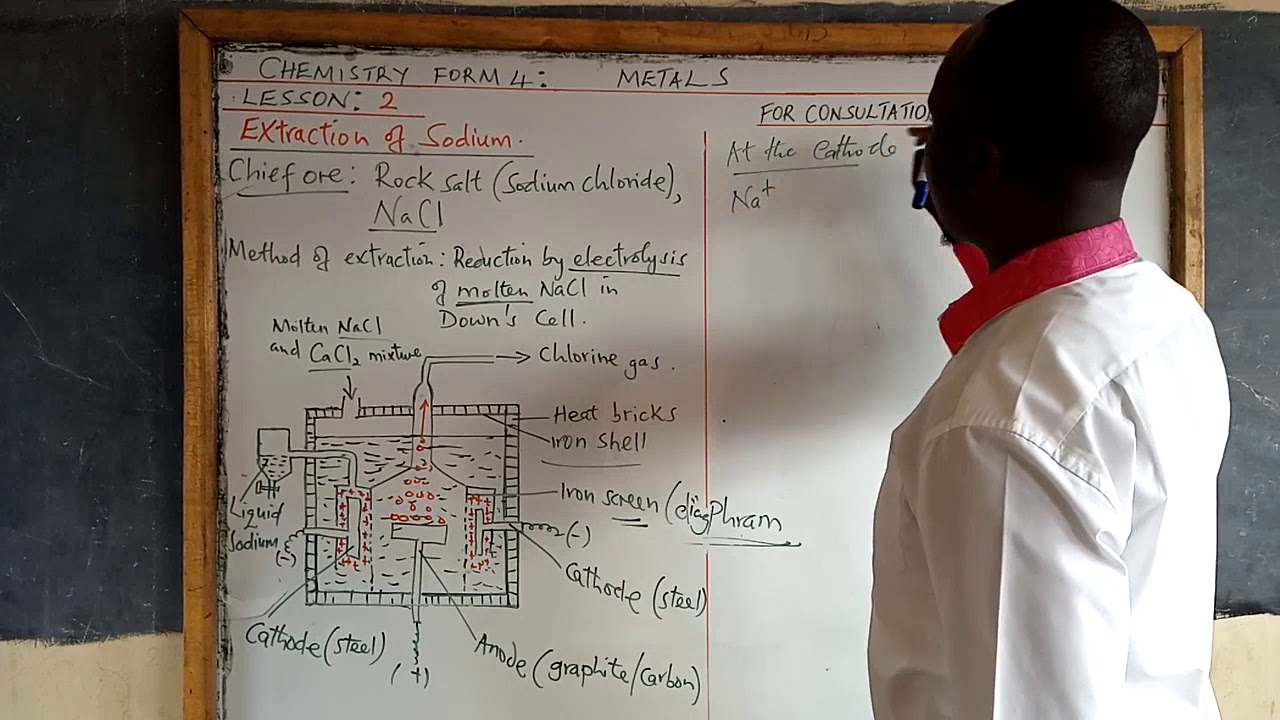 CHEMISTRY FORM 4: METALS
LESSON: 2
FOR CONSULTATION
Extraction of Sodium.
Chief ore: Rock salt (Sodium chloride),
NaCl
Method of extraction: Reduction by electrolysis
of molten NaCl in
Down's Cell.
Molten NaCl
and CaCl₂ mixture
Chlorine gas.
Heat bricks
Iron shell
Iron screen (diaphram
Liquid
Sodium
(-)
(-)
Cathode (steel)
Cathode (steel)
Anode (graphite/carbon)
(+)
At the Cathode
Na⁺